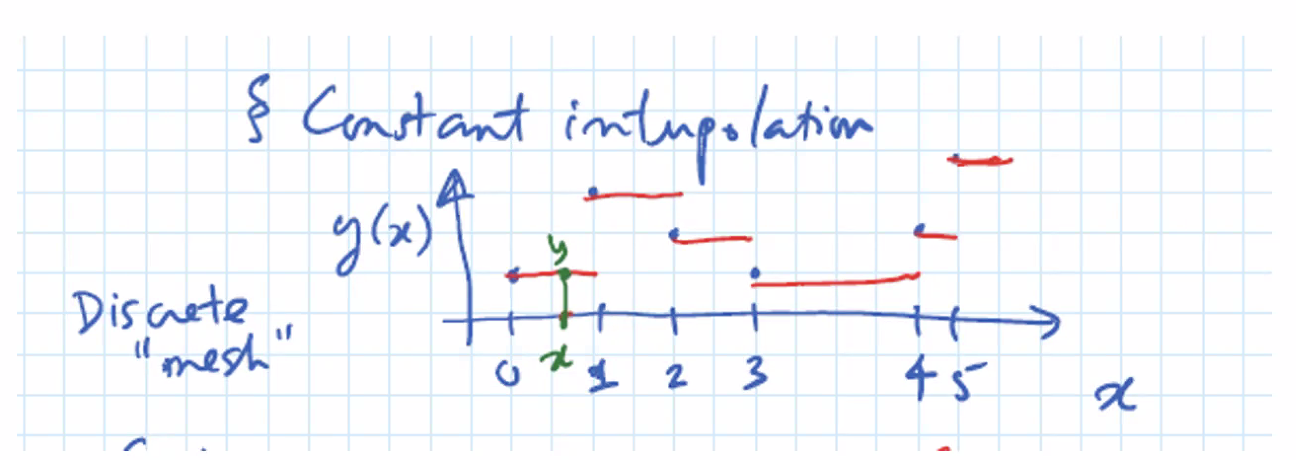 § Constant interpolation
y(x)
y
Discrete
"mesh"
0 x 1 2 3 4 5 x